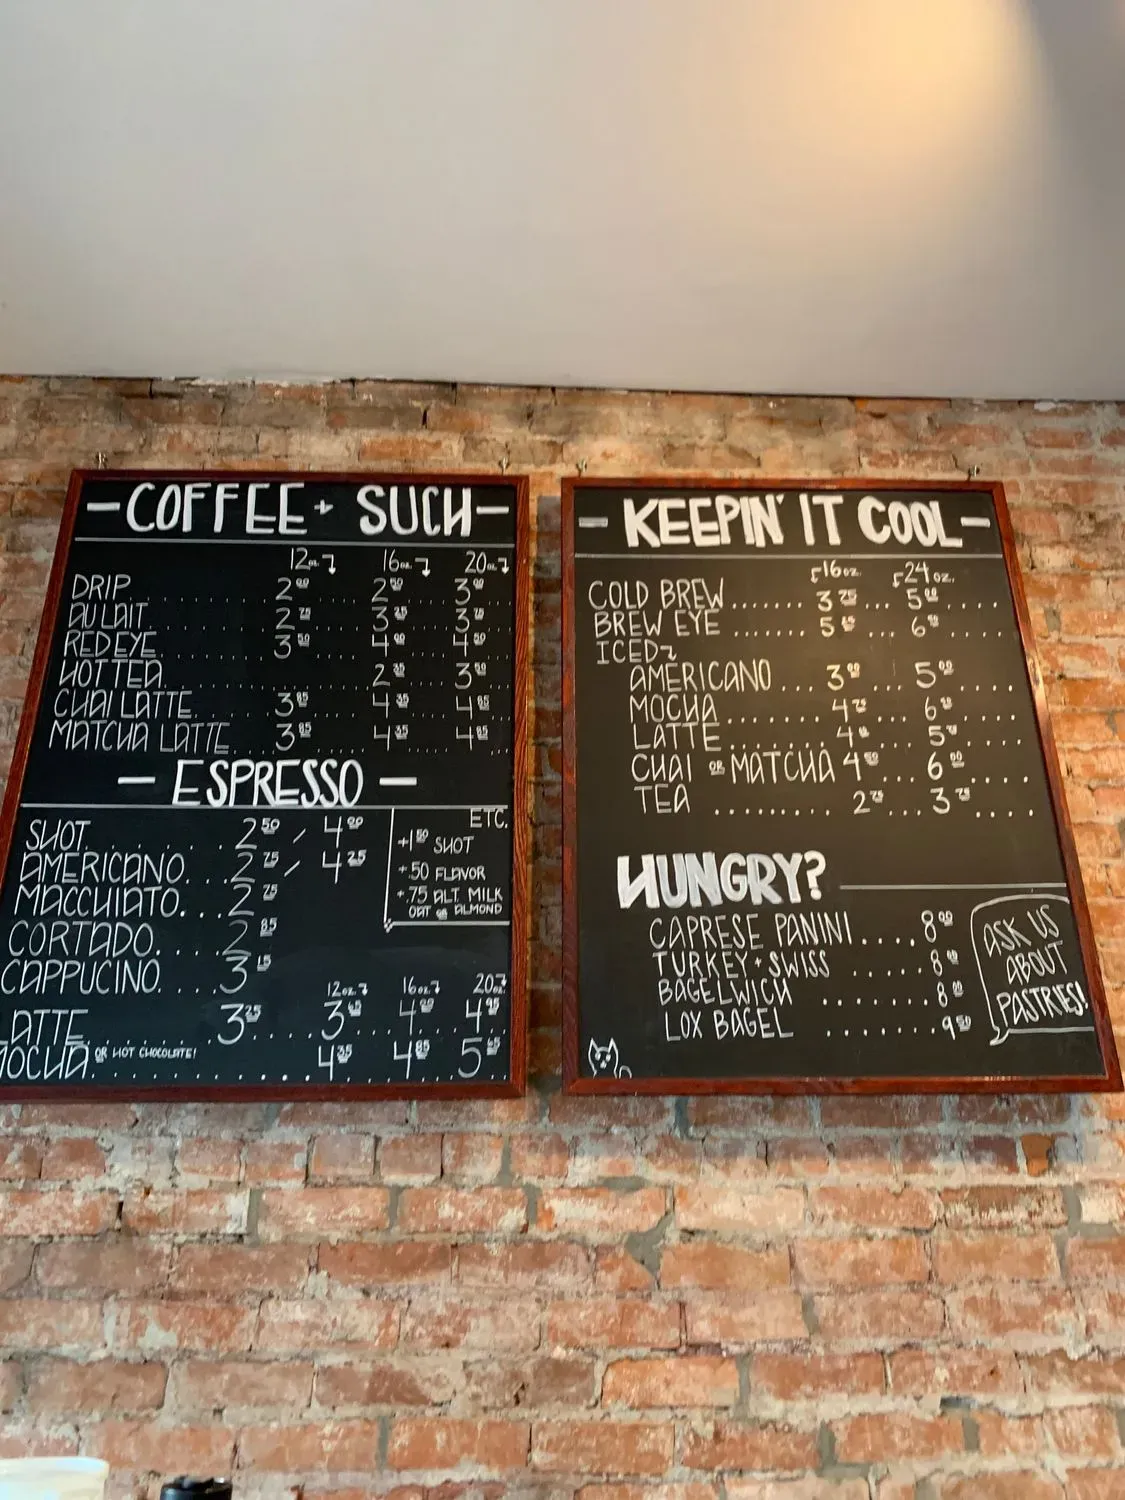 - COFFEE + SUCH -
12oz. 16oz. 20oz.
DRIP 2.00 2.50 3.00
AU LAIT 2.75 3.25 3.75
RED EYE 3.50 4.00 4.50
HOT TEA 2.25 3.50
CHAI LATTE 3.85 4.35 4.85
MATCHA LATTE 3.85 4.35 4.85
- ESPRESSO -
SHOT 2.50 / 4.00
AMERICANO 2.75 / 4.25
MACCHIATO 2.75
CORTADO 2.85
CAPPUCINO 3.15
12oz. 16oz. 20oz.
LATTE 3.25 3.65 4.20 4.95
MOCHA OR HOT CHOCOLATE! 4.35 4.85 5.65
ETC.
+1.50 SHOT
+.50 FLAVOR
+.75 ALT. MILK
OAT OR ALMOND
- KEEPIN' IT COOL -
16oz. 24oz.
COLD BREW 3.75 5.00
BREW EYE 5 6
ICED
AMERICANO 3.00 5.00
MOCHA 4.75 6
LATTE 4 5
CHAI OR MATCHA 4.50 6.00
TEA 2.75 3.75
HUNGRY?
CAPRESE PANINI 8.00
TURKEY + SWISS 8.00
BAGELWICH 8.00
LOX BAGEL 9.50
ASK US
ABOUT
PASTRIES!